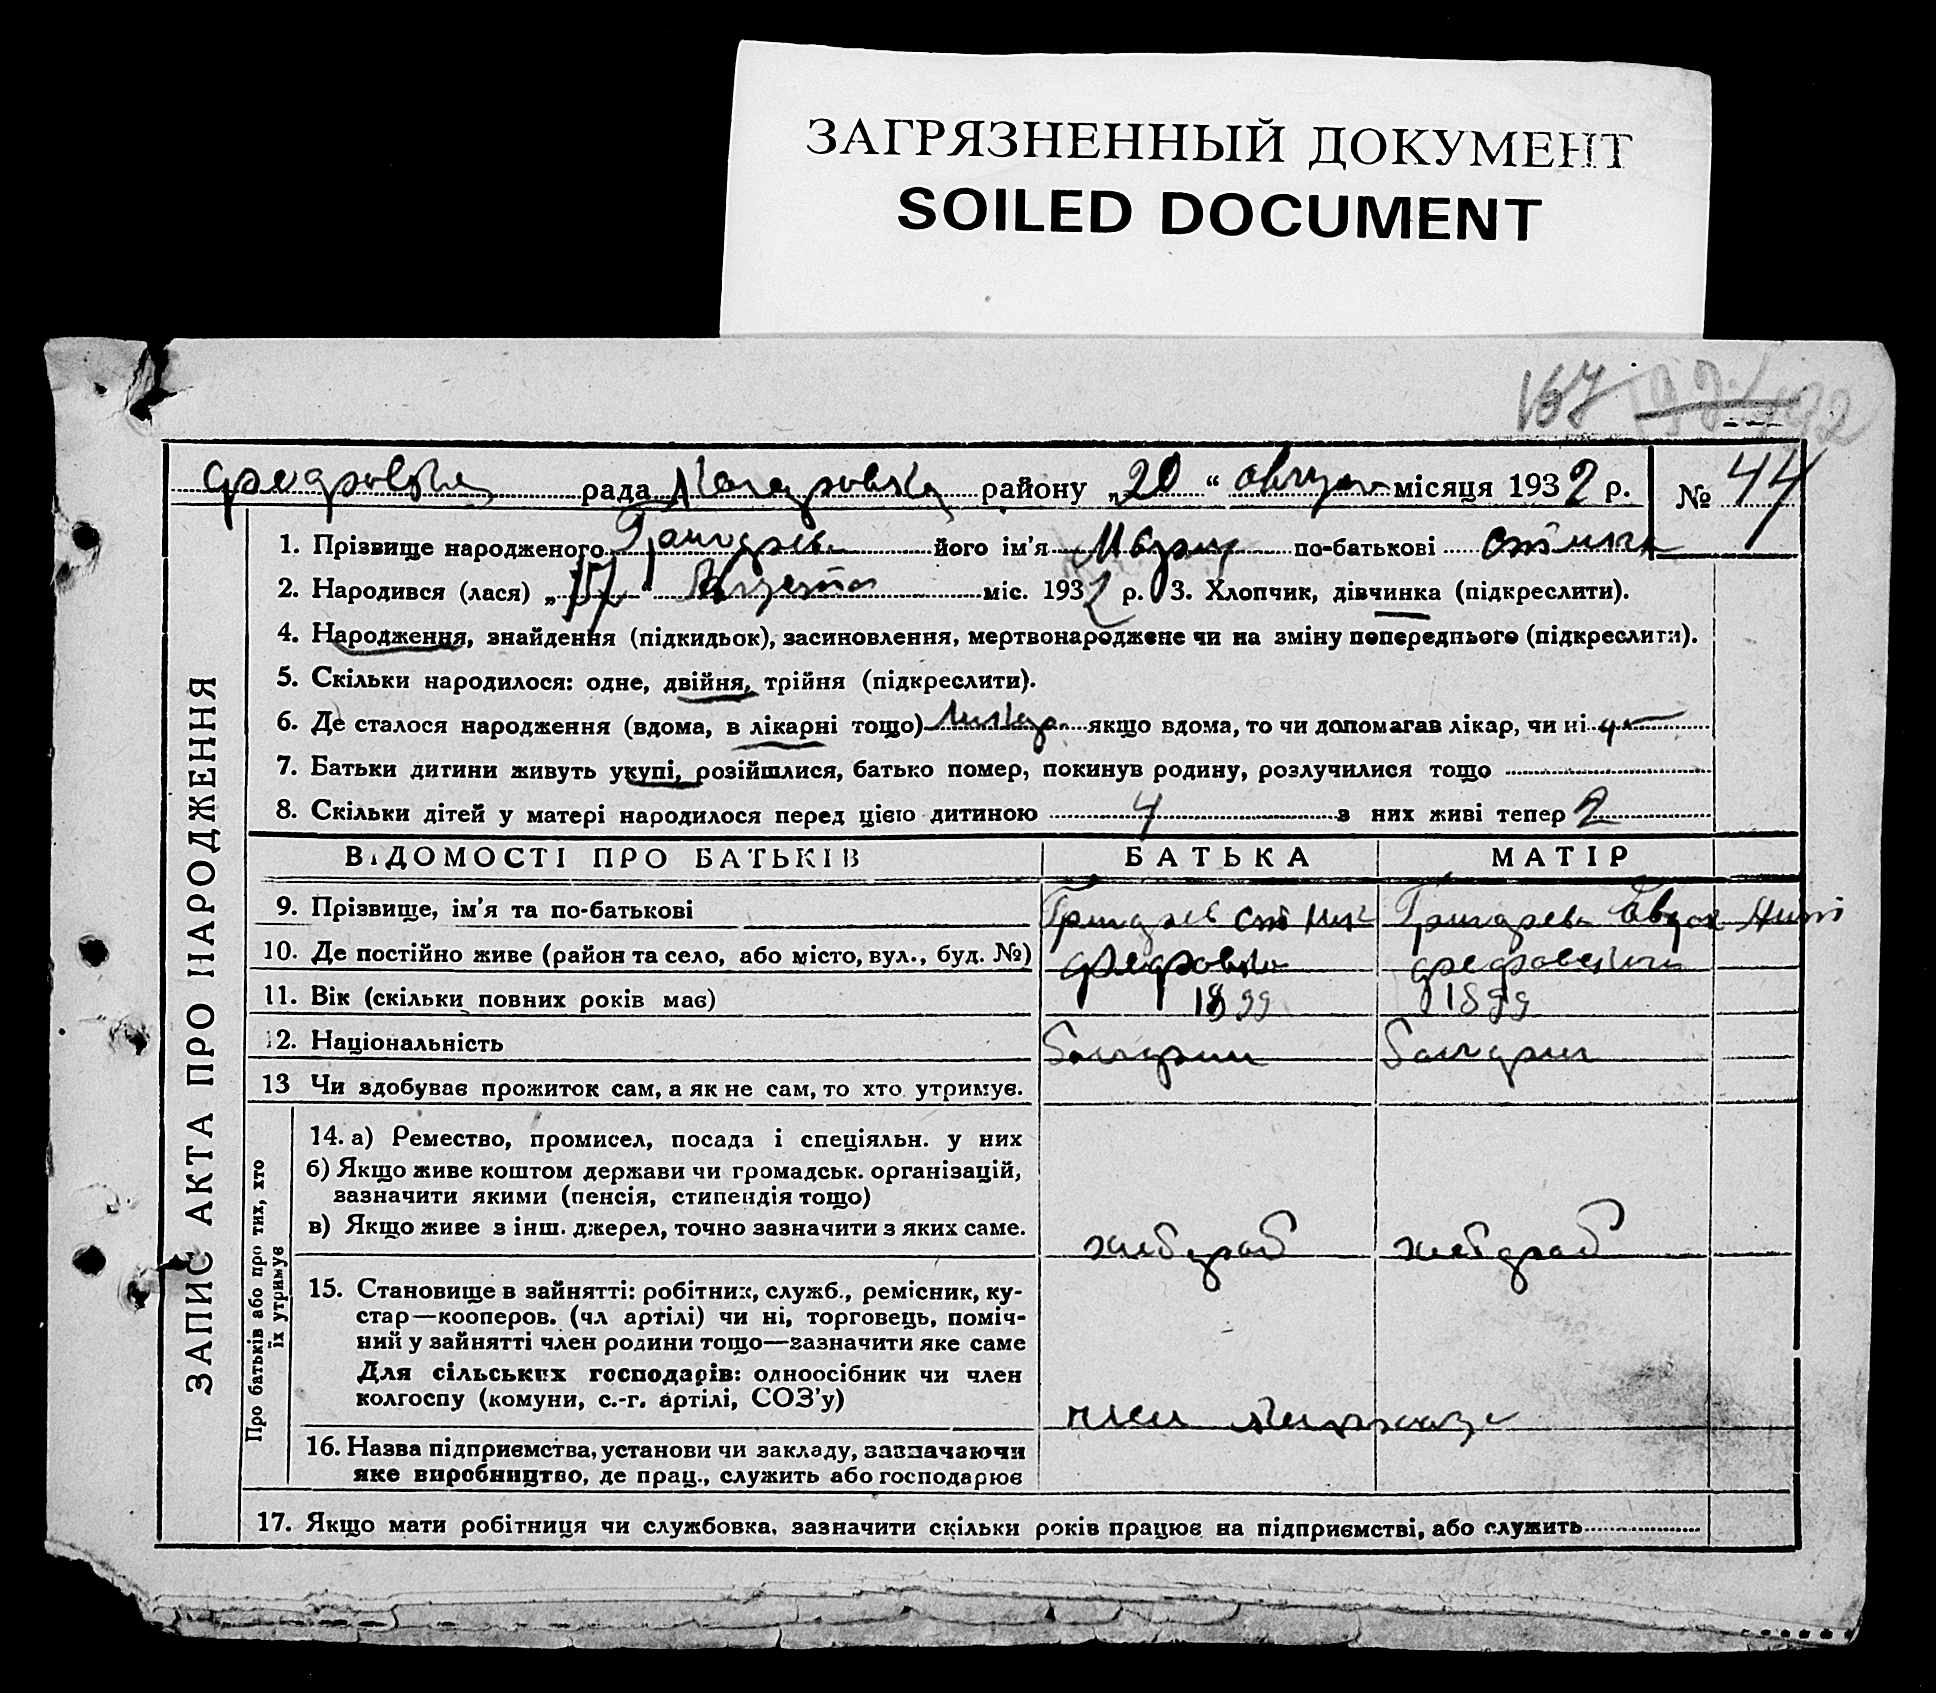 ЗАГРЯЗНЕННЫЙ ДОКУМЕНТ
SOILED DOCUMENT
167
рада района „20“ місяця 1932 р. № 44
1. Прізвище народженого його ім'я по-батькові
2. Народився (лася) „ “ Августа міс. 1932 р. 3. Хлопчик, дівчинка (підкреслити).
4. Народження, знайдення (підкидьок), засиновлення, мертвонароджене чи на зміну попереднього (підкреслити).
5. Скільки народилося: одне, двійня, трійня (підкреслити).
6. Де сталося народження (вдома, в лікарні тощо) якщо вдома, то чи допомагав лікар, чи ні
7. Батьки дитини живуть укупі, розійшлися, батько помер, покинув родину, розлучилися тощо
8. Скільки дітей у матері народилося перед цією дитиною 4 з них живі тепер 2
ВІДОМОСТІ ПРО БАТЬКІВ БАТЬКА МАТІР
9. Прізвище, ім'я та по-батькові
10. Де постійно живе (район та село, або місто, вул., буд. №)
11. Вік (скільки повних років має) 1899 1899
12. Національність болгарин болгарин
13 Чи здобуває прожиток сам, а як не сам, то хто утримує.
14. а) Ремество, промисел, посада і спеціяльн. у них
б) Якщо живе коштом держави чи громадськ. організацій,
зазначити якими (пенсія, стипендія тощо)
в) Якщо живе з інш. джерел, точно зазначити з яких саме.
хлебороб хлебороб
15. Становище в зайнятті: робітник, служб., ремісник, ку-
стар—кооперов. (чл артілі) чи ні, торговець, поміч-
ний у зайнятті член родини тощо—зазначити яке саме
Для сільських господарів: одноосібник чи член
колгоспу (комуни, с.-г. артілі, СОЗ'у)
16. Назва підприємства, установи чи закладу, зазначаючи
яке виробництво, де прац., служить або господарює
17. Якщо мати робітниця чи службовка, зазначити скільки років працює на підприємстві, або служить
ЗАПИС АКТА ПРО НАРОДЖЕННЯ
Про батьків або про тих, хто
їх утримує